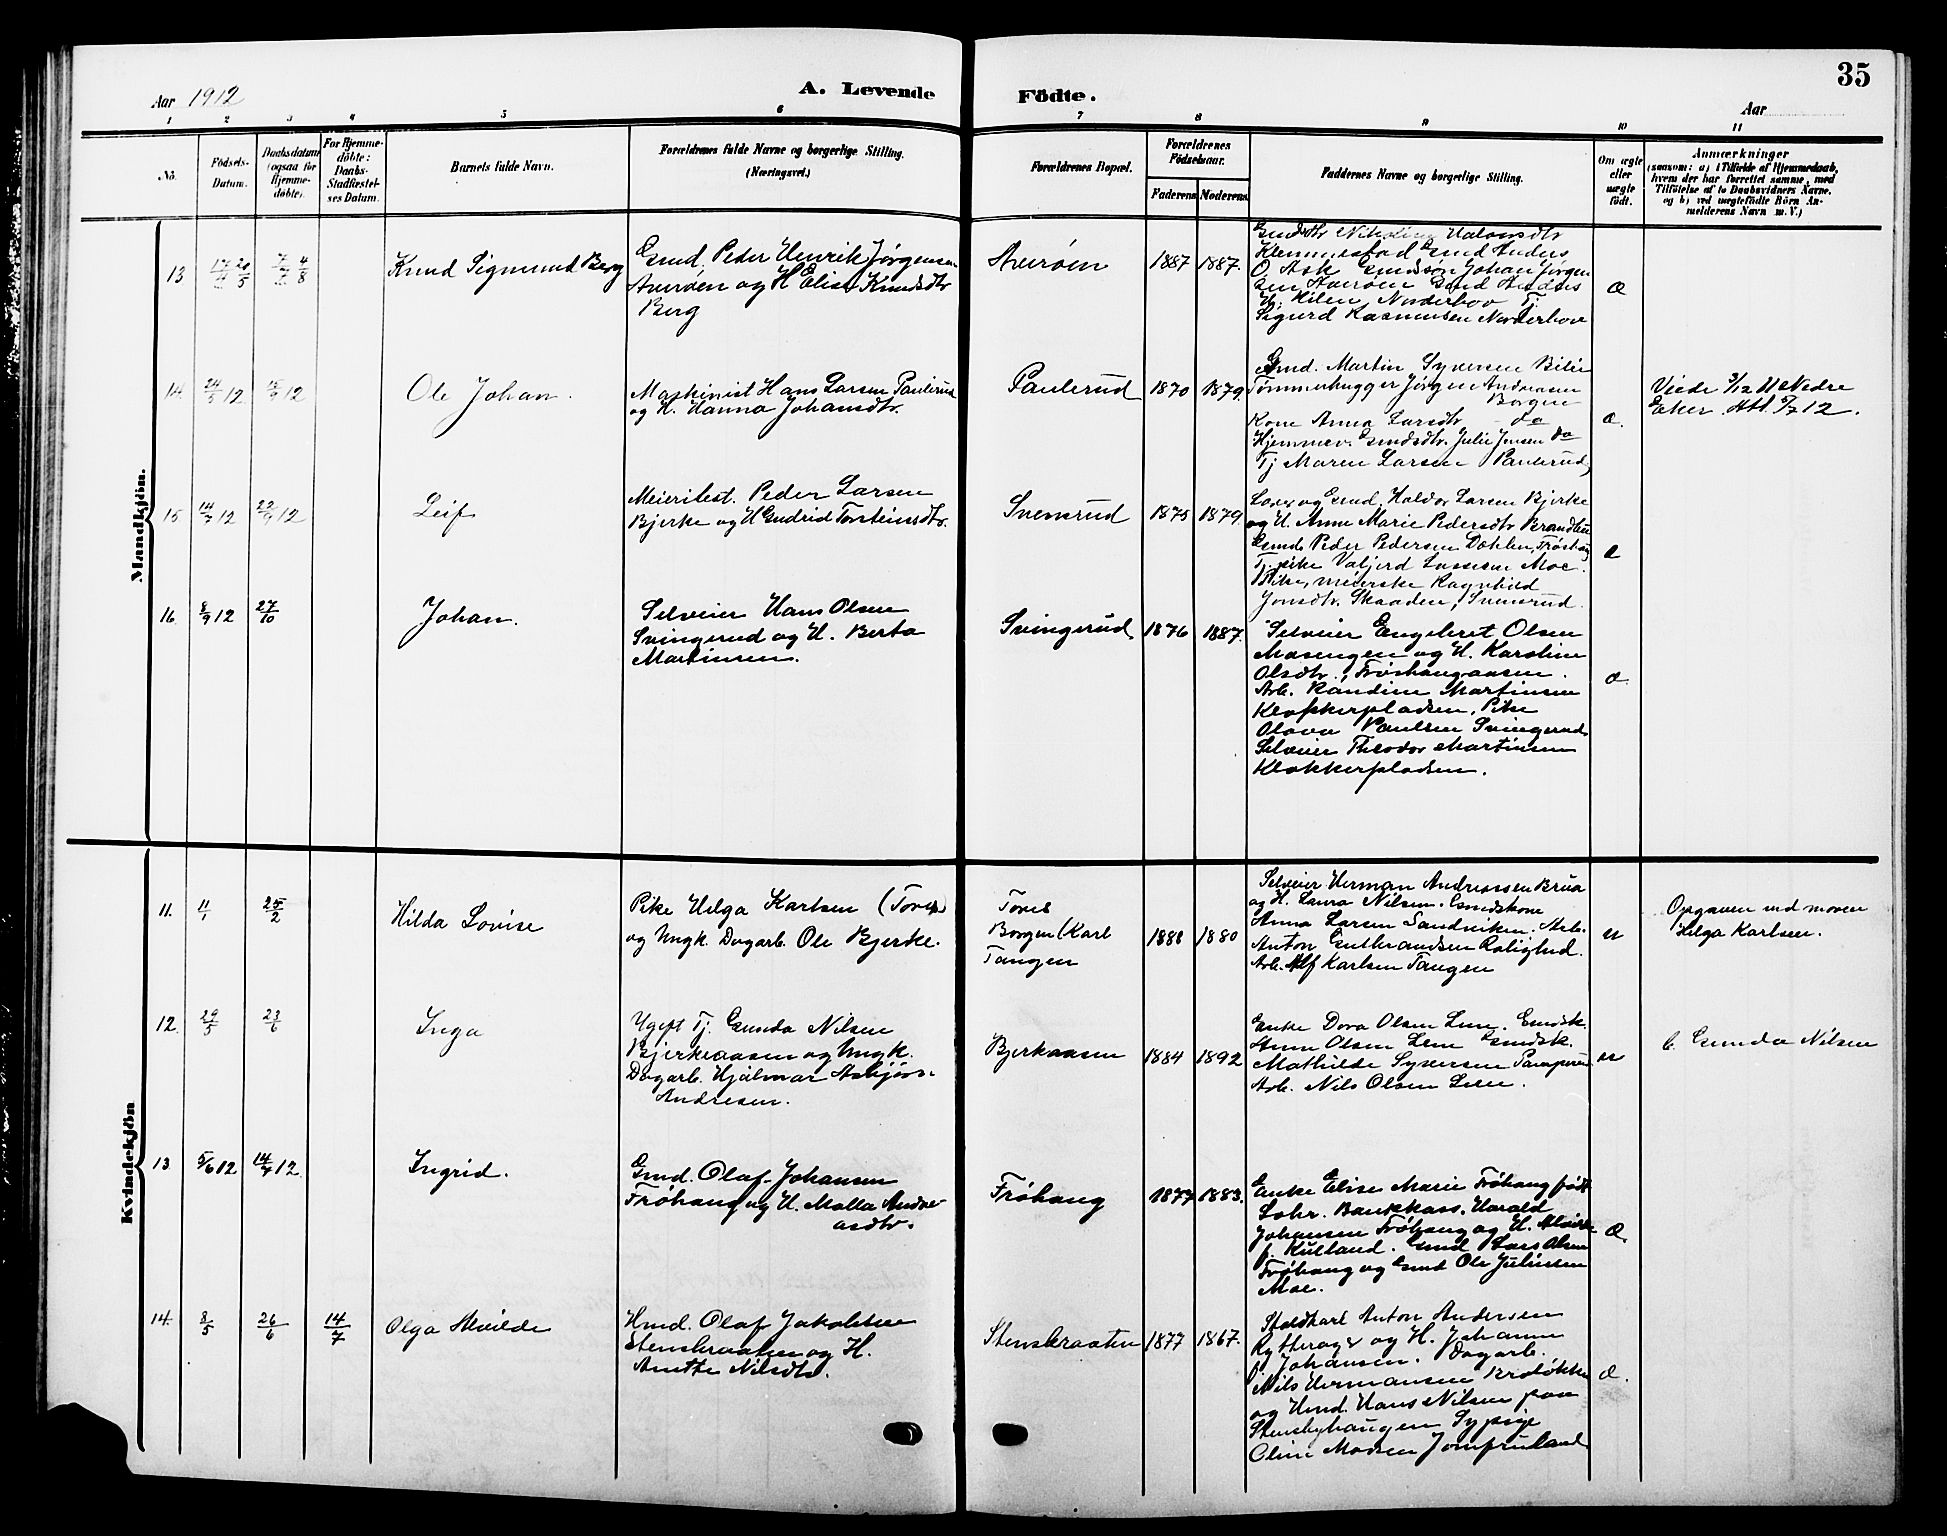 35
Aar 1912
A. Levende
Födte.
Aar
1 2 3 4 5 6 7 8 9 10 11
No.
Födsels-
Datum.
Daabsdatum
(ogsaa for
Hjemme-
döbte).
For Hjemme-
döbte:
Daabs-
Stadfæstel-
ses Datum.
Barnets fulde Navn.
Forældrenes fulde Navne og borgerlige Stilling.
(Næringsvei.)
Forældrenes Bopæl.
Forældrenes
Födselsaar.
Faderens
Moderens
Faddernes Navne og borgerlige Stilling.
Om ægte
eller
uægte
födt.
Anmærkninger
(saasom: a) i Tilfælde af Hjemmedaab,
hvem der har forrettet samme, med
Tilföielse af to Daabsvidners Navne,
og b) ved uægtefödte Börn An-
melderens Navn m. V.)
Mandkjön.
13
4/8
Knud Sigmund Berg
Gmd. Peder Henrik Jörgensen
Averöen og H. Elise Knudsdtr
Berg
Averöen
1887 1887.
Klemmestad Gmd Anders
O. Ask Gmdssön Johan Jörgen
sen Averöen Gmd Anders
Hilen, Norderhov Tj.
Sigurd Rasmussen Norderhov
Æ
14.
24/5 12
15/9 12
Ole Johan.
Maskinist Hans Larsen Paulerud
og H. Hanna Johansdtr.
Paulerud
1870 1879.
Gmd. Martin Syversen Bili
Tömmerhugger Jörgen Andreasen
Borgen
Kone Anna Larsdtr do
Hjemmev. Gmdsdtr. Julie Jensen do
Tj Maren Larsen Paulerud
Æ.
Viede 3/12 11 Nedre
Eker. Att. 12.
15.
14/7 12
22/9 12
Leif
Meieribest. Peder Larsen
Bjerke og H Gudrid Torsteinsdtr.
Svensrud
1875 1879.
og Gmd. Haldor Larsen Bjerke
og H. Anne Marie Pedersdtr
Gmd. Peder Pedersen Dæhlen, Fröshaug
Tj. pike Valjerd Lassesen Moe.
Pike, meierske Ragnhild
Jonsdtr. Skaaden, Svensrud.
16.
8/9 12
27/10
Johan.
Selveier Hans Olsen
Svingerud og H. Berta
Martinsen.
Svingerud
1876 1887.
Selveier Engebret Olsen
Masengen og H. Karoline
Olsdtr., Fröshaugaasen.
Arb. Randine Martinsen
Klokkerpladsen, Pike
Olava Paulsen Svingerud
Selveier Theodor Martinsen
Klokkerpladsen.
Kvindekjön
11.
11/1
25/2
Hilda Lovise
Pike Helga Karlsen (Tores)
og Ungk. Dagarb. Ole Bjerke.
Tores
Borgen (Karl
Tangen
1888 1880
Selveier Herman Andreassen Brua
og H. Laura Nilsen. Gmdskone
Anna Larsen Sandviken. Arb.
Anton Gulbrandsen Rolighed.
Arb. Alf Karlsen Tangen
u
Opgaven ved moren
Helga Karlsen.
12.
29/5
23/6
Inga
Ugift Tj. Gunda Nilsen
Bjerkeaasen og Ungk.
Dagarb. Hjalmar Asbjörn
Andresen.
Bjerkaasen
1884 1892
Enke Dora Olsen Lien. Gmdsk.
Anne Olsen Lien Gmdsk.
Mathilde Syversen
Arb. Nils Olsen Lien.
b. Gunda Nilsen
13.
5/6 12
14/7 12
Ingrid.
Gmd. Olaf Johansen
Fröhaug og H. Molla Andre
asdtr.
Fröhaug
1877 1883.
Enke Elise Marie Fröhaug födt
Lohr. Bankkass. Harald
Johansen Fröhaug og H. Alvilde
f. Kulland. Gmd Lars Olsen
Fröhaug og Gmd Ole Juliussen
Moe.
Æ.
14.
8/5
26/6
14/7
Olga Alvilde
Hmd. Olaf Jakobsen
Stensbraaten og H.
Anette Nilsdtr.
Stensbraaten
1877 1867.
Staldkarl Anton Andersen
Rytterager og H. Johanne
f. Johansen. Dagarb.
Nils Hermansen Broløkke
og Hmd. Hans Nilsen paa
Stensbyhaugen Sypige
Oline Madsen Jomfruland
Æ.